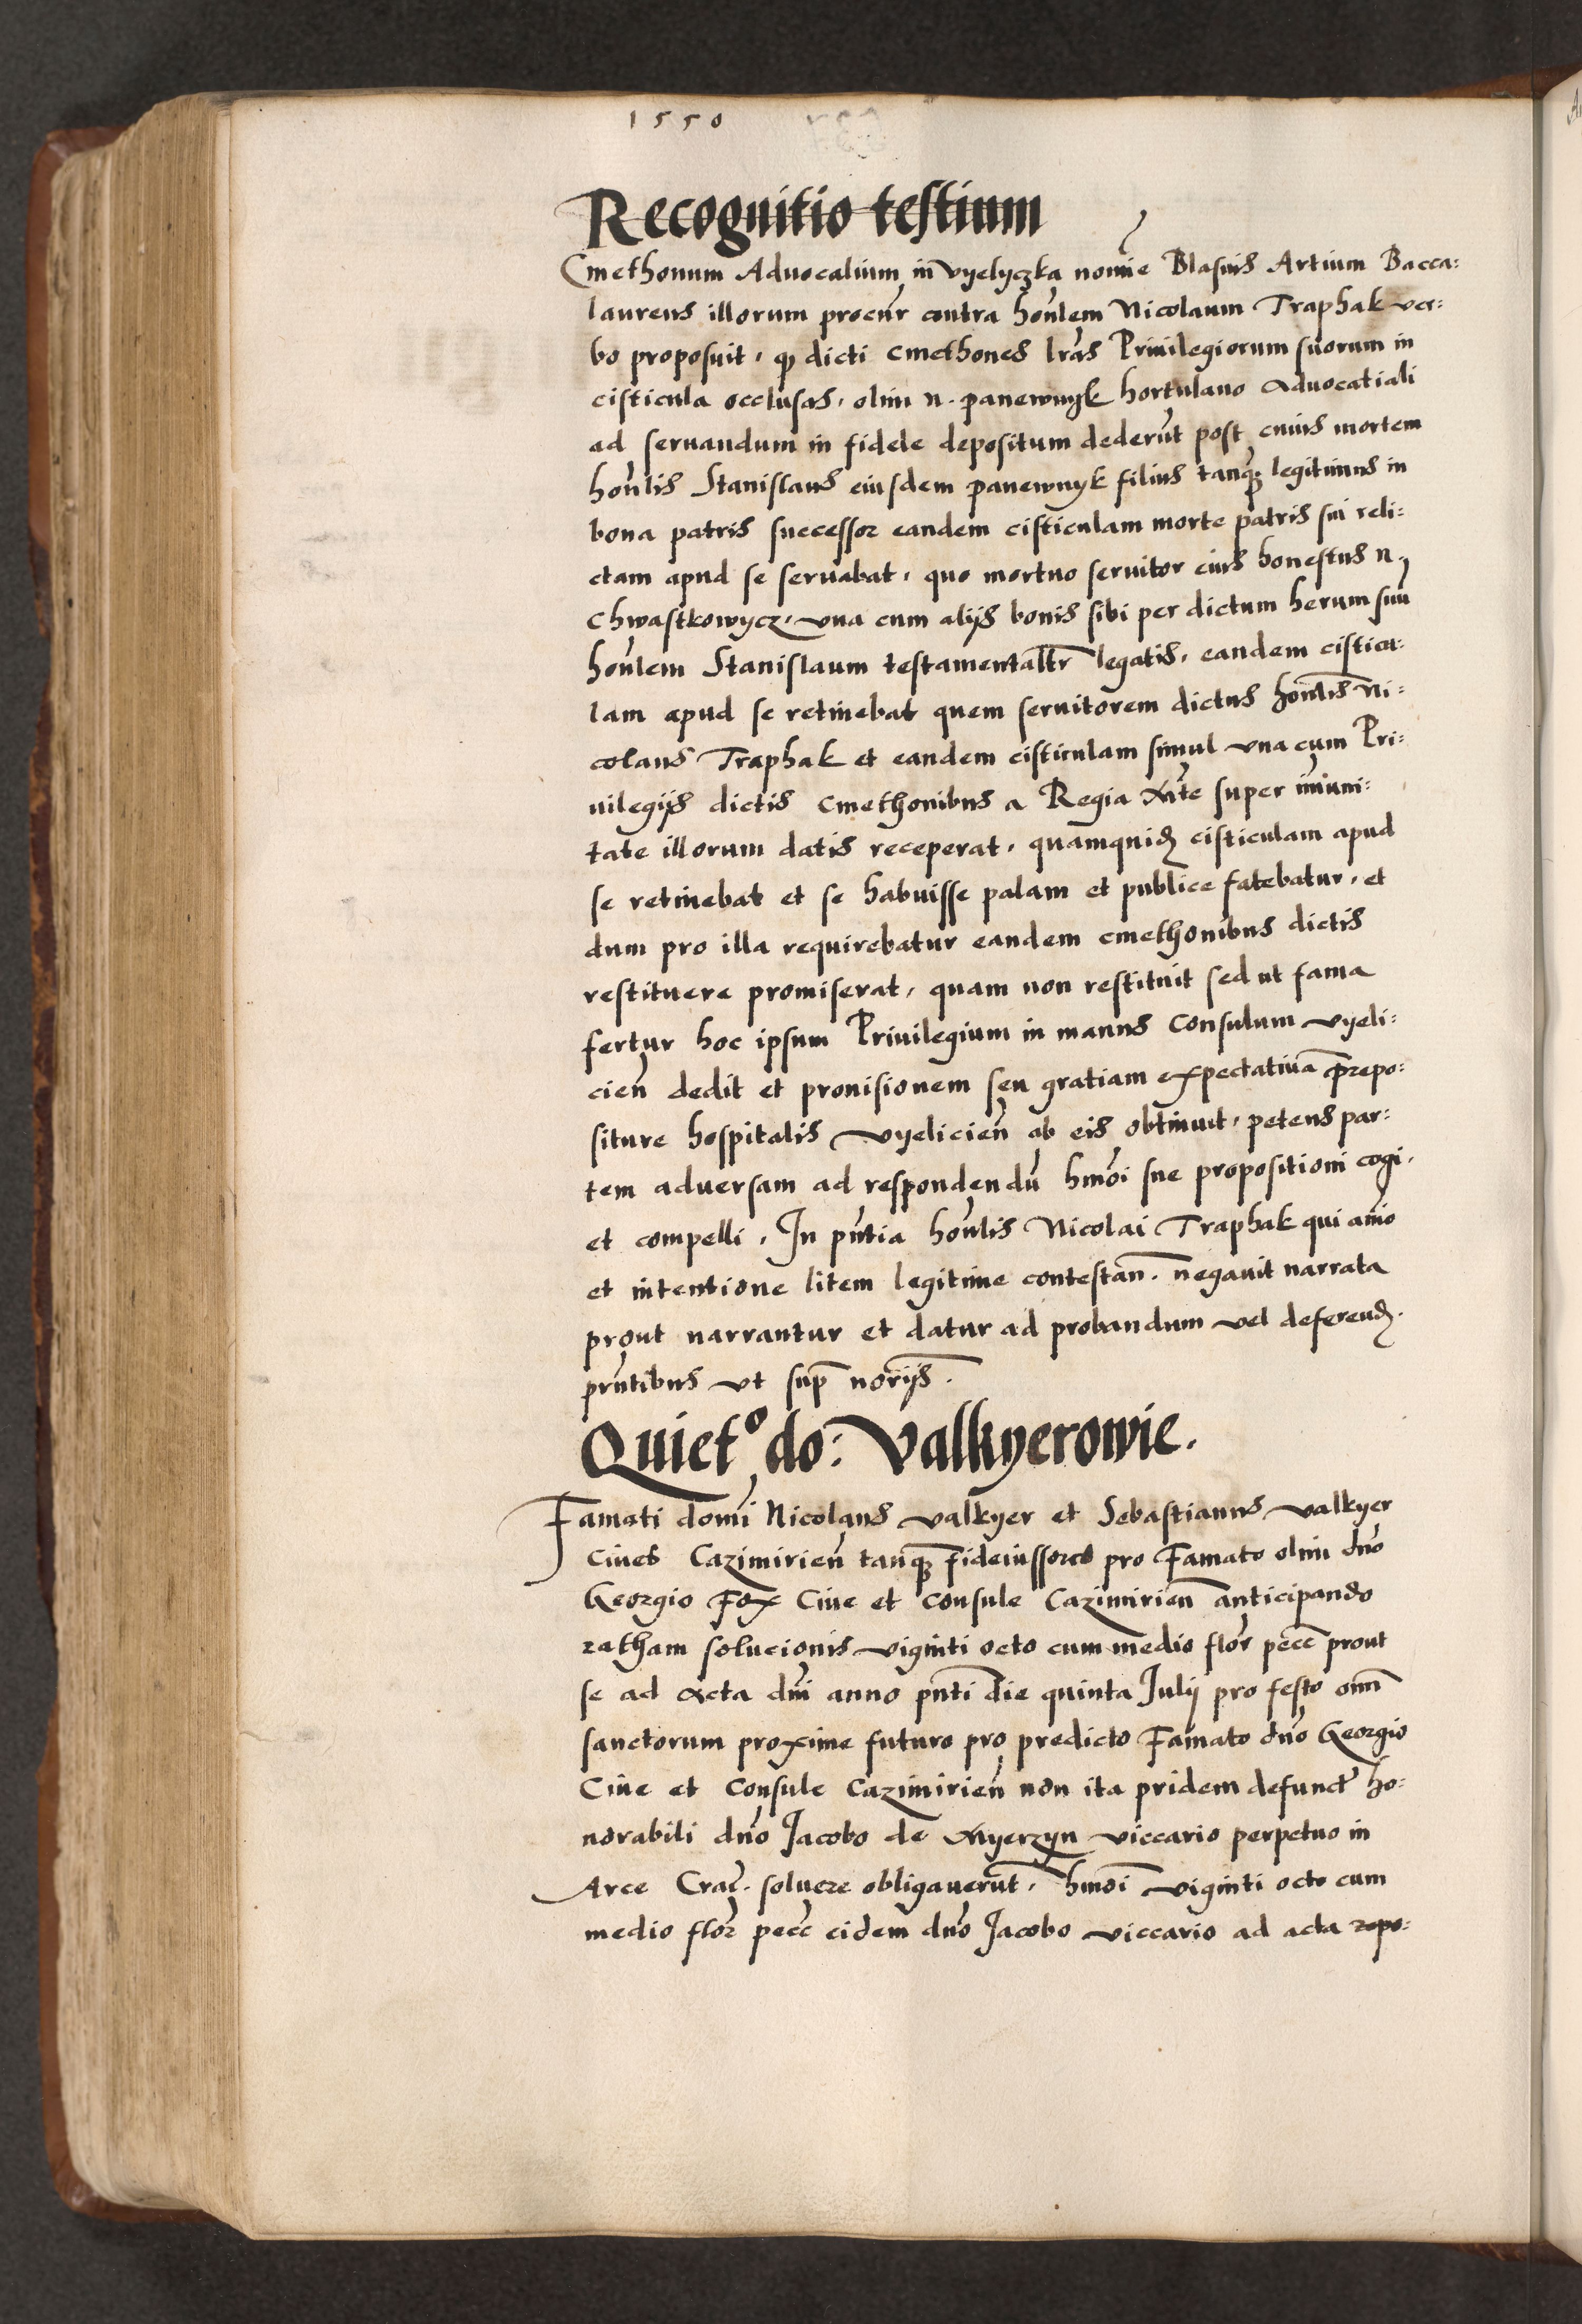 1550
Recognitio testium
Cmethonum Advocalium in Vyelyczka nomīe Blasius Artium Bacca:
laureus illorum procūr contra honlem Nicolaum Traphak ver:
bo proposuit, qꝫ dicti Cmethones lrās Priuilegiorum suorum in
cisticula occlusas, olim n. panewnyk hortulano Advocatiali
ad seruandum in fidele depositum dederūt post cuius mortem
honlis Stanislaus eiusdem panewnyk filius tanqꝫ legitimus in
bona patris successor eandem cisticulam morte patris sui reli:
ctam apud se seruabat, quo mortuo seruitor eius honestus n.
Chwastkowycz, vna cum alijs bonis sibi per dictum herum suū
honlem Stanislaum testamentaltr legatis, eandem cisticu:
lam apud se retinebat quem seruitorem dictus honlis Ni:
colaus Traphak et eandem cisticulam simul vna cum Pri:
uilegijs dictis Cmethonibus a Regia Mte super imuni:
tate illorum datis receperat, quamquidꝫ cisticulam apud
se retinebat et se habuisse palam et publice fatebatur, et
dum pro illa requirebatur eandem cmethonibus dictis
restituere promiserat, quam non restituit sed ut fama
fertur hoc ipsum Priuilegium in manus Consulum vyeli:
cien̄ dedit et prouisionem seu gratiam expectatiuā p̄repo:
siture hospitalis vyelicien̄ ab eis obtinuit, petens par:
tem aduersam ad respondendū hmōi sue propositioni cogi,
et compelli, In pn̄tia honlis Nicolai Traphak qui aīo
et intentione litem legitime contestan̄. negauit narrata
prout narrantur et datur ad probandum vel deferendꝫ.
prn̄tibus vt sup̄ norijs.
Quietº do: Valkyerowie.
Famati domī Nicolaus valkyer et Sebastianus valkyer
Ciues Cazimirien̄ tanqꝫ fideiussores pro Famato olim dn̄o
Georgio Fox Ciue et Consule Cazimirien̄ anticipando
ratham solucionis viginti octo cum medio flor pecc̄ prout
se ad Acta dn̄i anno pn̄ti die quinta Julij pro festo omn̄
sanctorum proxime futuro pro predicto Famato dn̄o Georgio
Ciue et Consule Cazimirien̄ non ita pridem defunct̄ ho:
norabili dn̄o Jacobo de Myerzyn viccario perpetuo in
Arce Crac̄. soluere obligauerūt, hmōi viginti octo cum
medio flor pecc̄ eidem dn̄o Jacobo viccario ad acta repo: